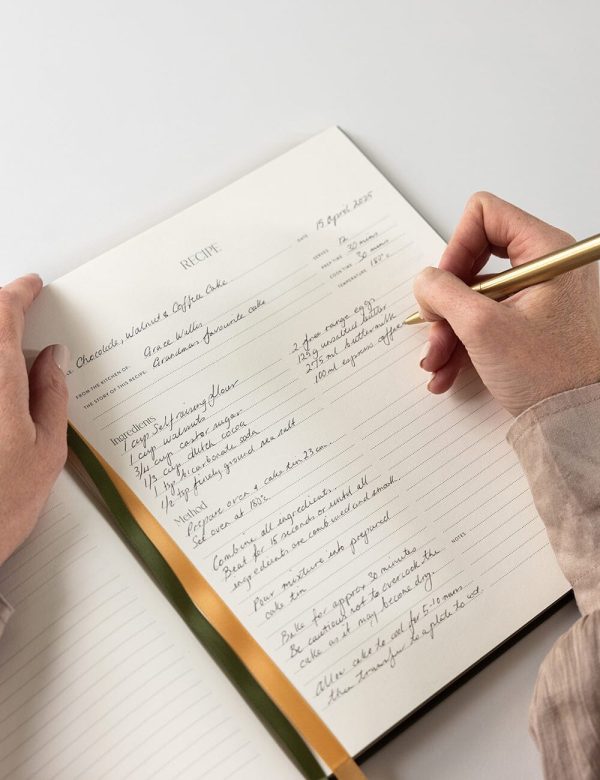 RECIPE
DATE 15 April 2025
Chocolate, Walnut & Coffee Cake
SERVES 12
FROM THE KITCHEN OF: Grace Welles
PREP TIME 30 mins
THE STORY OF THIS RECIPE: Grandmas favourite cake
COOK TIME 30 mins
TEMPERATURE 180°c
Ingredients
1 cup Self raising flour
1 cup walnuts
3/4 cup castor sugar
1/3 cup dutch cocoa
1 tsp bicarbonate soda
1/2 tsp finely ground sea salt
2 free range eggs
125g unsalted butter
275 ml buttermilk
100ml espresso coffee
Method
Prepare oven & cake tin 23cm.
Set oven at 180°c
Combine all ingredients.
Beat for 15 seconds or until all
ingredients are combined and small.
Pour mixture into prepared
cake tin.
Bake for approx 30 minutes
Be cautious not to overcook the
cake as it may become dry.
Allow cake to cool for 5-10 mins
then transfer to a plate to
NOTES